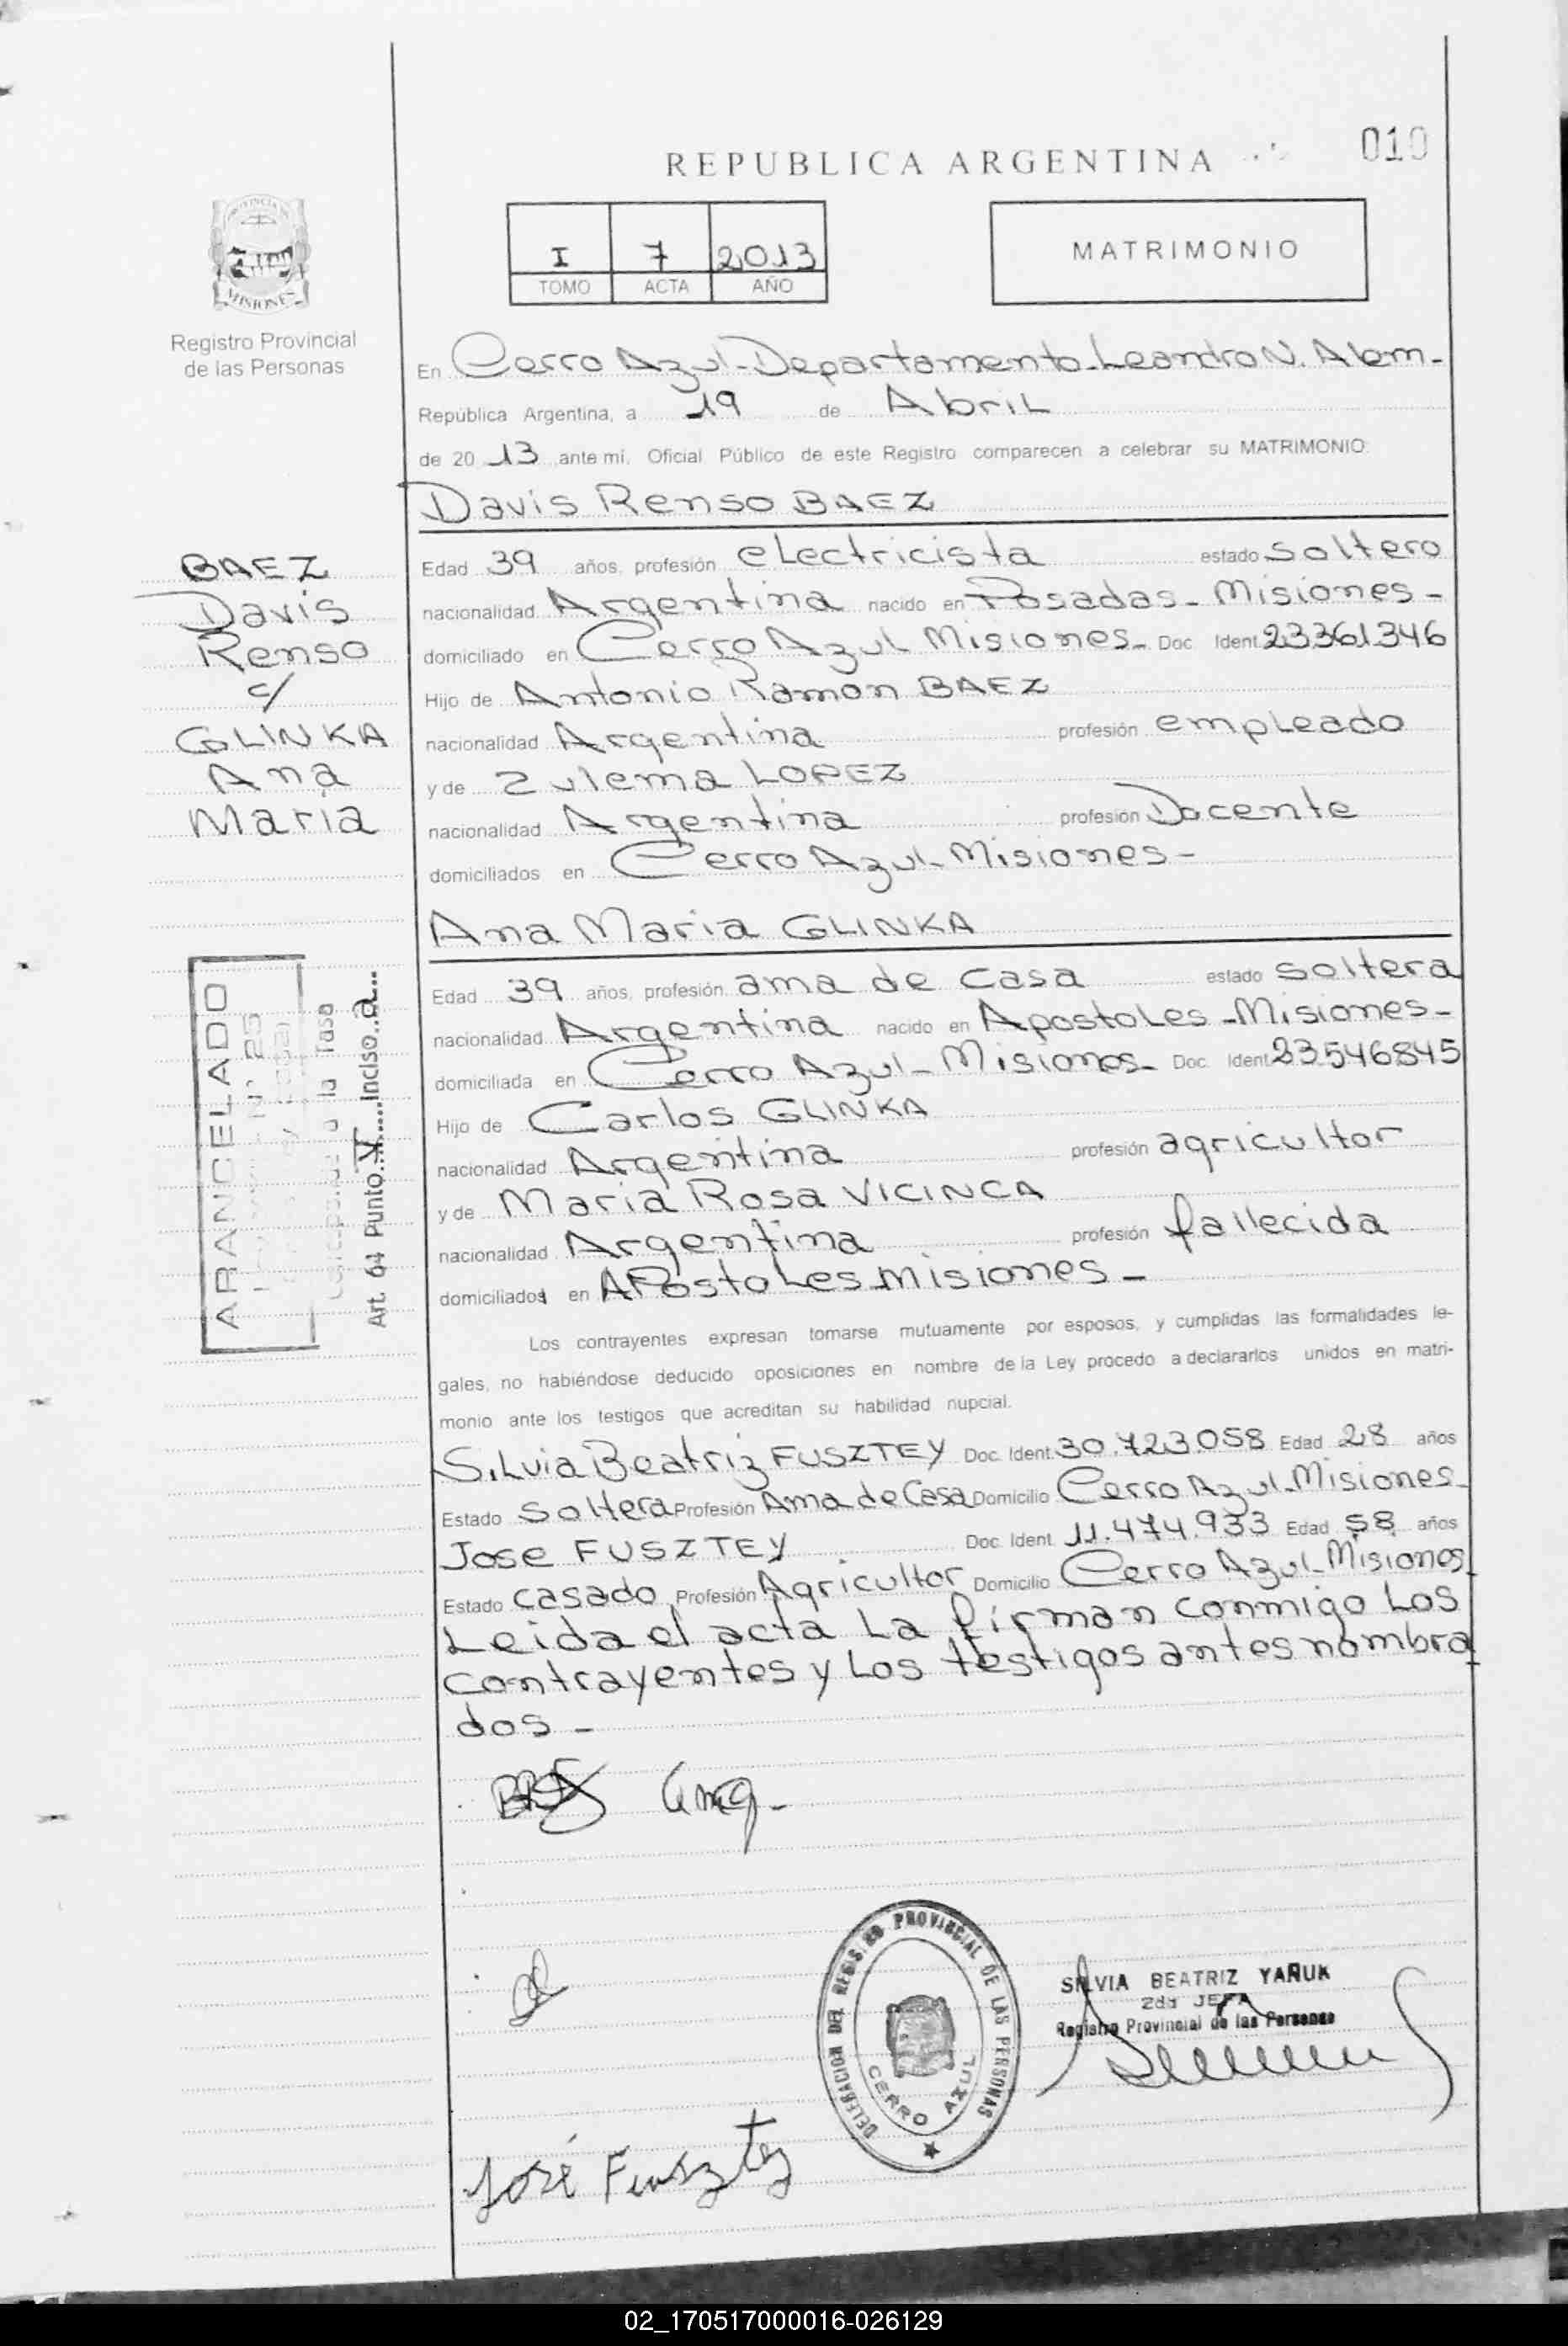 010
REPUBLICA ARGENTINA
PROVINCIA DE
MISIONES
Registro Provincial
de las Personas
I 7 2013
TOMO ACTA AÑO
MATRIMONIO
En Cerro Azul-Departamento-Leandro N. Alem-
República Argentina, a 19 de Abril
de 20 13 ante mi, Oficial Público de este Registro comparecen a celebrar su MATRIMONIO:
Davis Renso BAEZ
BAEZ
Davis
Renso
c/
GLINKA
Ana
Maria
Edad 39 años, profesión electricista estado soltero
nacionalidad Argentina nacido en Posadas-Misiones-
domiciliado en Cerro Azul Misiones- Doc. Ident. 23361346
Hijo de Antonio Ramon BAEZ
nacionalidad Argentina profesión empleado
y de Zulema LOPEZ
nacionalidad Argentina profesión Docente
domiciliados en Cerro Azul-Misiones-
Ana Maria GLINKA
Edad 39 años, profesión ama de casa estado soltera
nacionalidad Argentina nacido en Apostoles-Misiones-
domiciliada en Cerro Azul-Misiones- Doc. Ident. 23546845
Hijo de Carlos GLINKA
nacionalidad Argentina profesión agricultor
y de Maria Rosa VICINCA
nacionalidad Argentina profesión fallecida
domiciliados en Apostoles Misiones-
ARANCELADO
Nº 25
a la Tasa
Art. 64 Punto V Inciso a
Los contrayentes expresan tomarse mutuamente por esposos, y cumplidas las formalidades le-
gales, no habiéndose deducido oposiciones en nombre de la Ley procedo a declararlos unidos en matri-
monio ante los testigos que acreditan su habilidad nupcial.
Silvia Beatriz FUSZTEY Doc. Ident. 30.723.058 Edad 28 años
Estado Soltera Profesión Ama de Casa Domicilio Cerro Azul-Misiones-
Jose FUSZTEY Doc. Ident. 11.474.933 Edad 58 años
Estado casado Profesión Agricultor Domicilio Cerro Azul-Misiones
Leida el acta La firman conmigo Los
contrayentes y Los testigos antes nombra
dos-
DELEGACION DEL REGISTRO PROVINCIAL DE LAS PERSONAS
CERRO AZUL
SILVIA BEATRIZ YAÑUK
2da JEFA
Registro Provincial de las Personas
José Fusztey
02_170517000016-026129